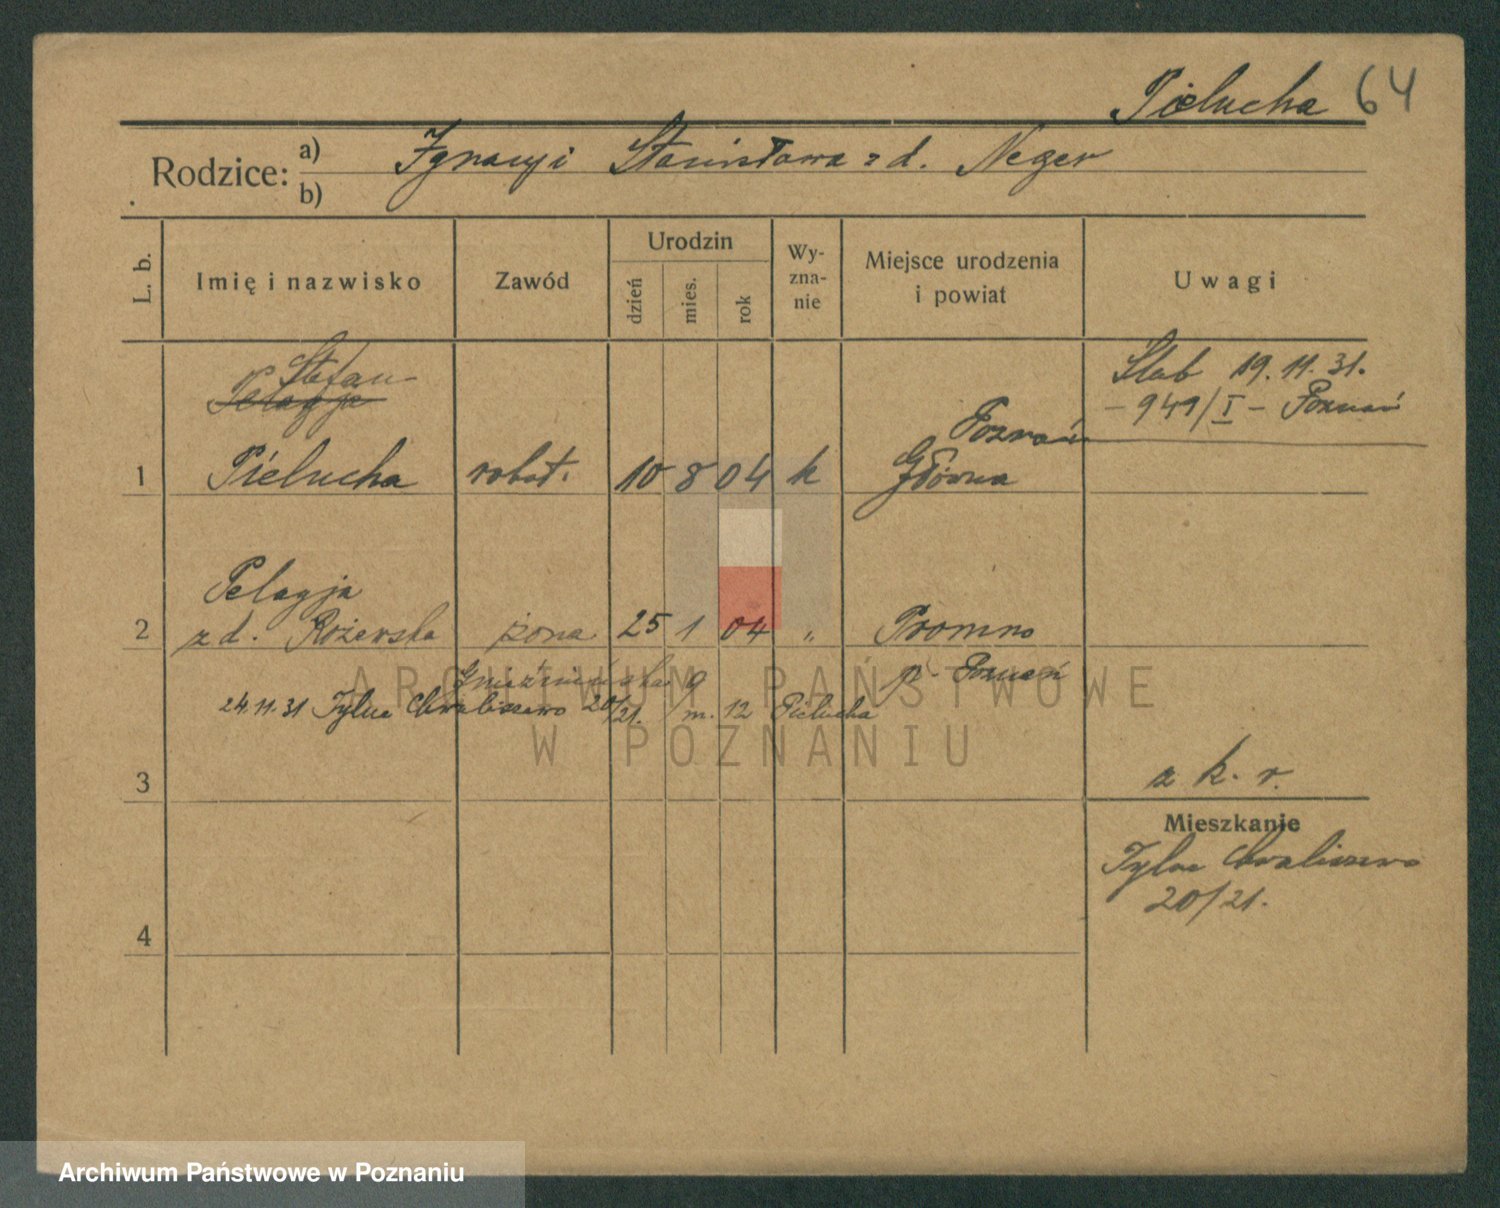 Pielucha 64
Rodzice: a) Ignacy i Stanisława z d. Neger
b)
L. b. Imię i nazwisko Zawód Urodzin dzień mies. rok Wy-zna-nie Miejsce urodzenia i powiat Uwagi
Stefan
Pelagja
Ślub 19.11.31.
- 949/I - Poznań
1 Pielucha robot. 10 8 04 k Poznań Główna
Pelagja
2 z d. Rożewska żona 25 1 04 " Promno
p. Poznań
Gnieźnieńska 9
24.11.31 Tylne Chwaliszewo 20/21. / m. 12 Pielucha
3
z k. r.
Mieszkanie
Tylne Chwaliszewo
20/21.
4
ARCHIWUM PAŃSTWOWE
W POZNANIU
Archiwum Państwowe w Poznaniu